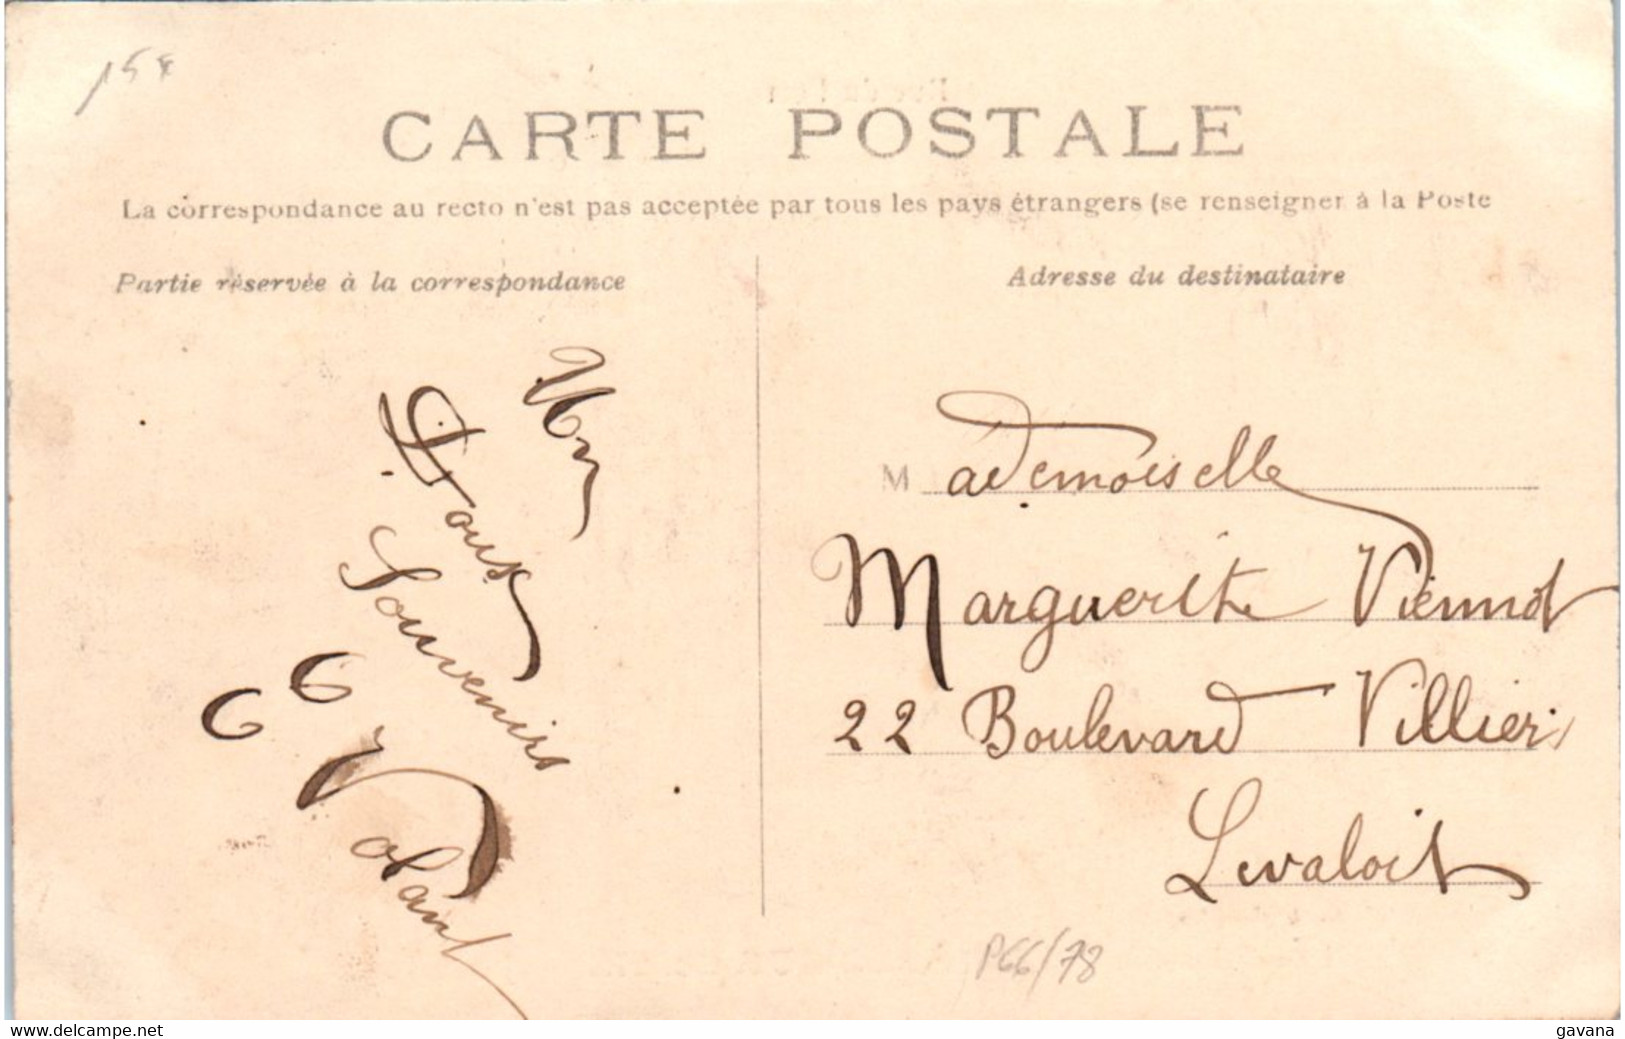 15 €
CARTE POSTALE
La correspondance au recto n'est pas acceptée par tous les pays étrangers (se renseigner à la Poste
Partie réservée à la correspondance
Adresse du destinataire
Un
Doux
Souvenirs
Volant
Mademoiselle
Marguerite Viennot
22 Boulevard Villiers
Levalois
P66/78
www.delcampe.net
gavana